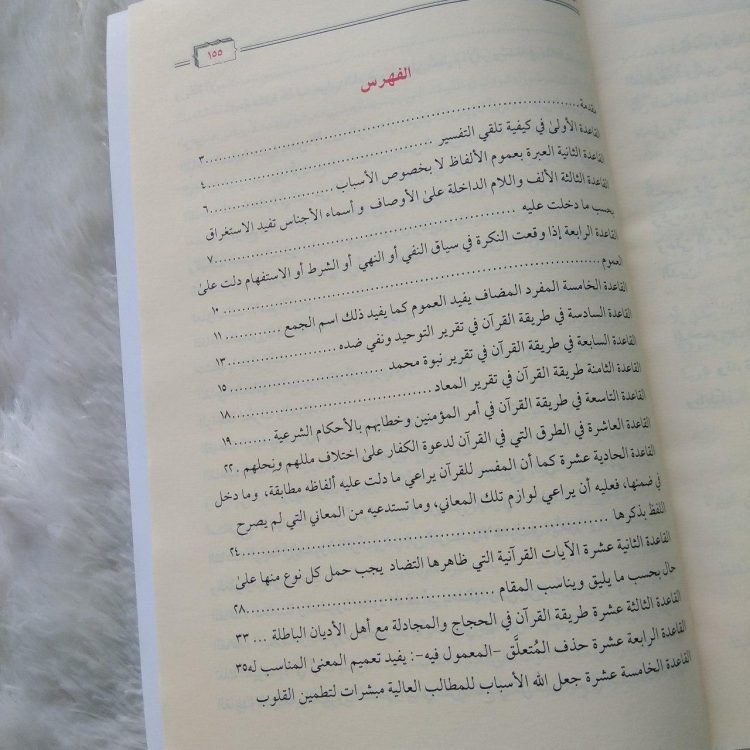 ١٥٥
الفهرس
مقدمة............................................................٣
القاعدة الأولىٰ في كيفية تلقي التفسير ................................٤
القاعدة الثانية العبرة بعموم الألفاظ لا بخصوص الأسباب ................٦
القاعدة الثالثة الألف واللام الداخلة علىٰ الأوصاف و أسماء الأجناس تفيد الاستغراق
بحسب ما دخلت عليه ................................................٧
القاعدة الرابعة إذا وقعت النكرة في سياق النفي أو النهي أو الشرط أو الاستفهام دلت علىٰ
العموم............................................................١٠
القاعدة الخامسة المفرد المضاف يفيد العموم كما يفيد ذلك اسم الجمع ............١١
القاعدة السادسة في طريقة القرآن في تقرير التوحيد ونفي ضده ................١٣
القاعدة السابعة في طريقة القرآن في تقرير نبوة محمد ........................١٥
القاعدة الثامنة طريقة القرآن في تقرير المعاد................................١٨
القاعدة التاسعة في طريقة القرآن في أمر المؤمنين وخطابهم بالأحكام الشرعية .........١٩
القاعدة العاشرة في الطرق التي في القرآن لدعوة الكفار علىٰ اختلاف مللهم ونِحلهم . ٢٢
القاعدة الحادية عشرة كما أن المفسر للقرآن يراعي ما دلت عليه ألفاظه مطابقة، وما دخل
في ضمنها، فعليه أن يراعي لوازم تلك المعاني، وما تستدعيه من المعاني التي لم يصرح
اللفظ بذكرها ......................................................٢٤
القاعدة الثانية عشرة الآيات القرآنية التي ظاهرها التضاد يجب حمل كل نوع منها علىٰ
حال بحسب ما يليق ويناسب المقام ....................................٢٨
القاعدة الثالثة عشرة طريقة القرآن في الحجاج والمجادلة مع أهل الأديان الباطلة ... ٣٣
القاعدة الرابعة عشرة حذف المُتعلَّق -المعمول فيه-: يفيد تعميم المعنىٰ المناسب له٣٥
القاعدة الخامسة عشرة جعل الله الأسباب للمطالب العالية مبشرات لتطمين القلوب